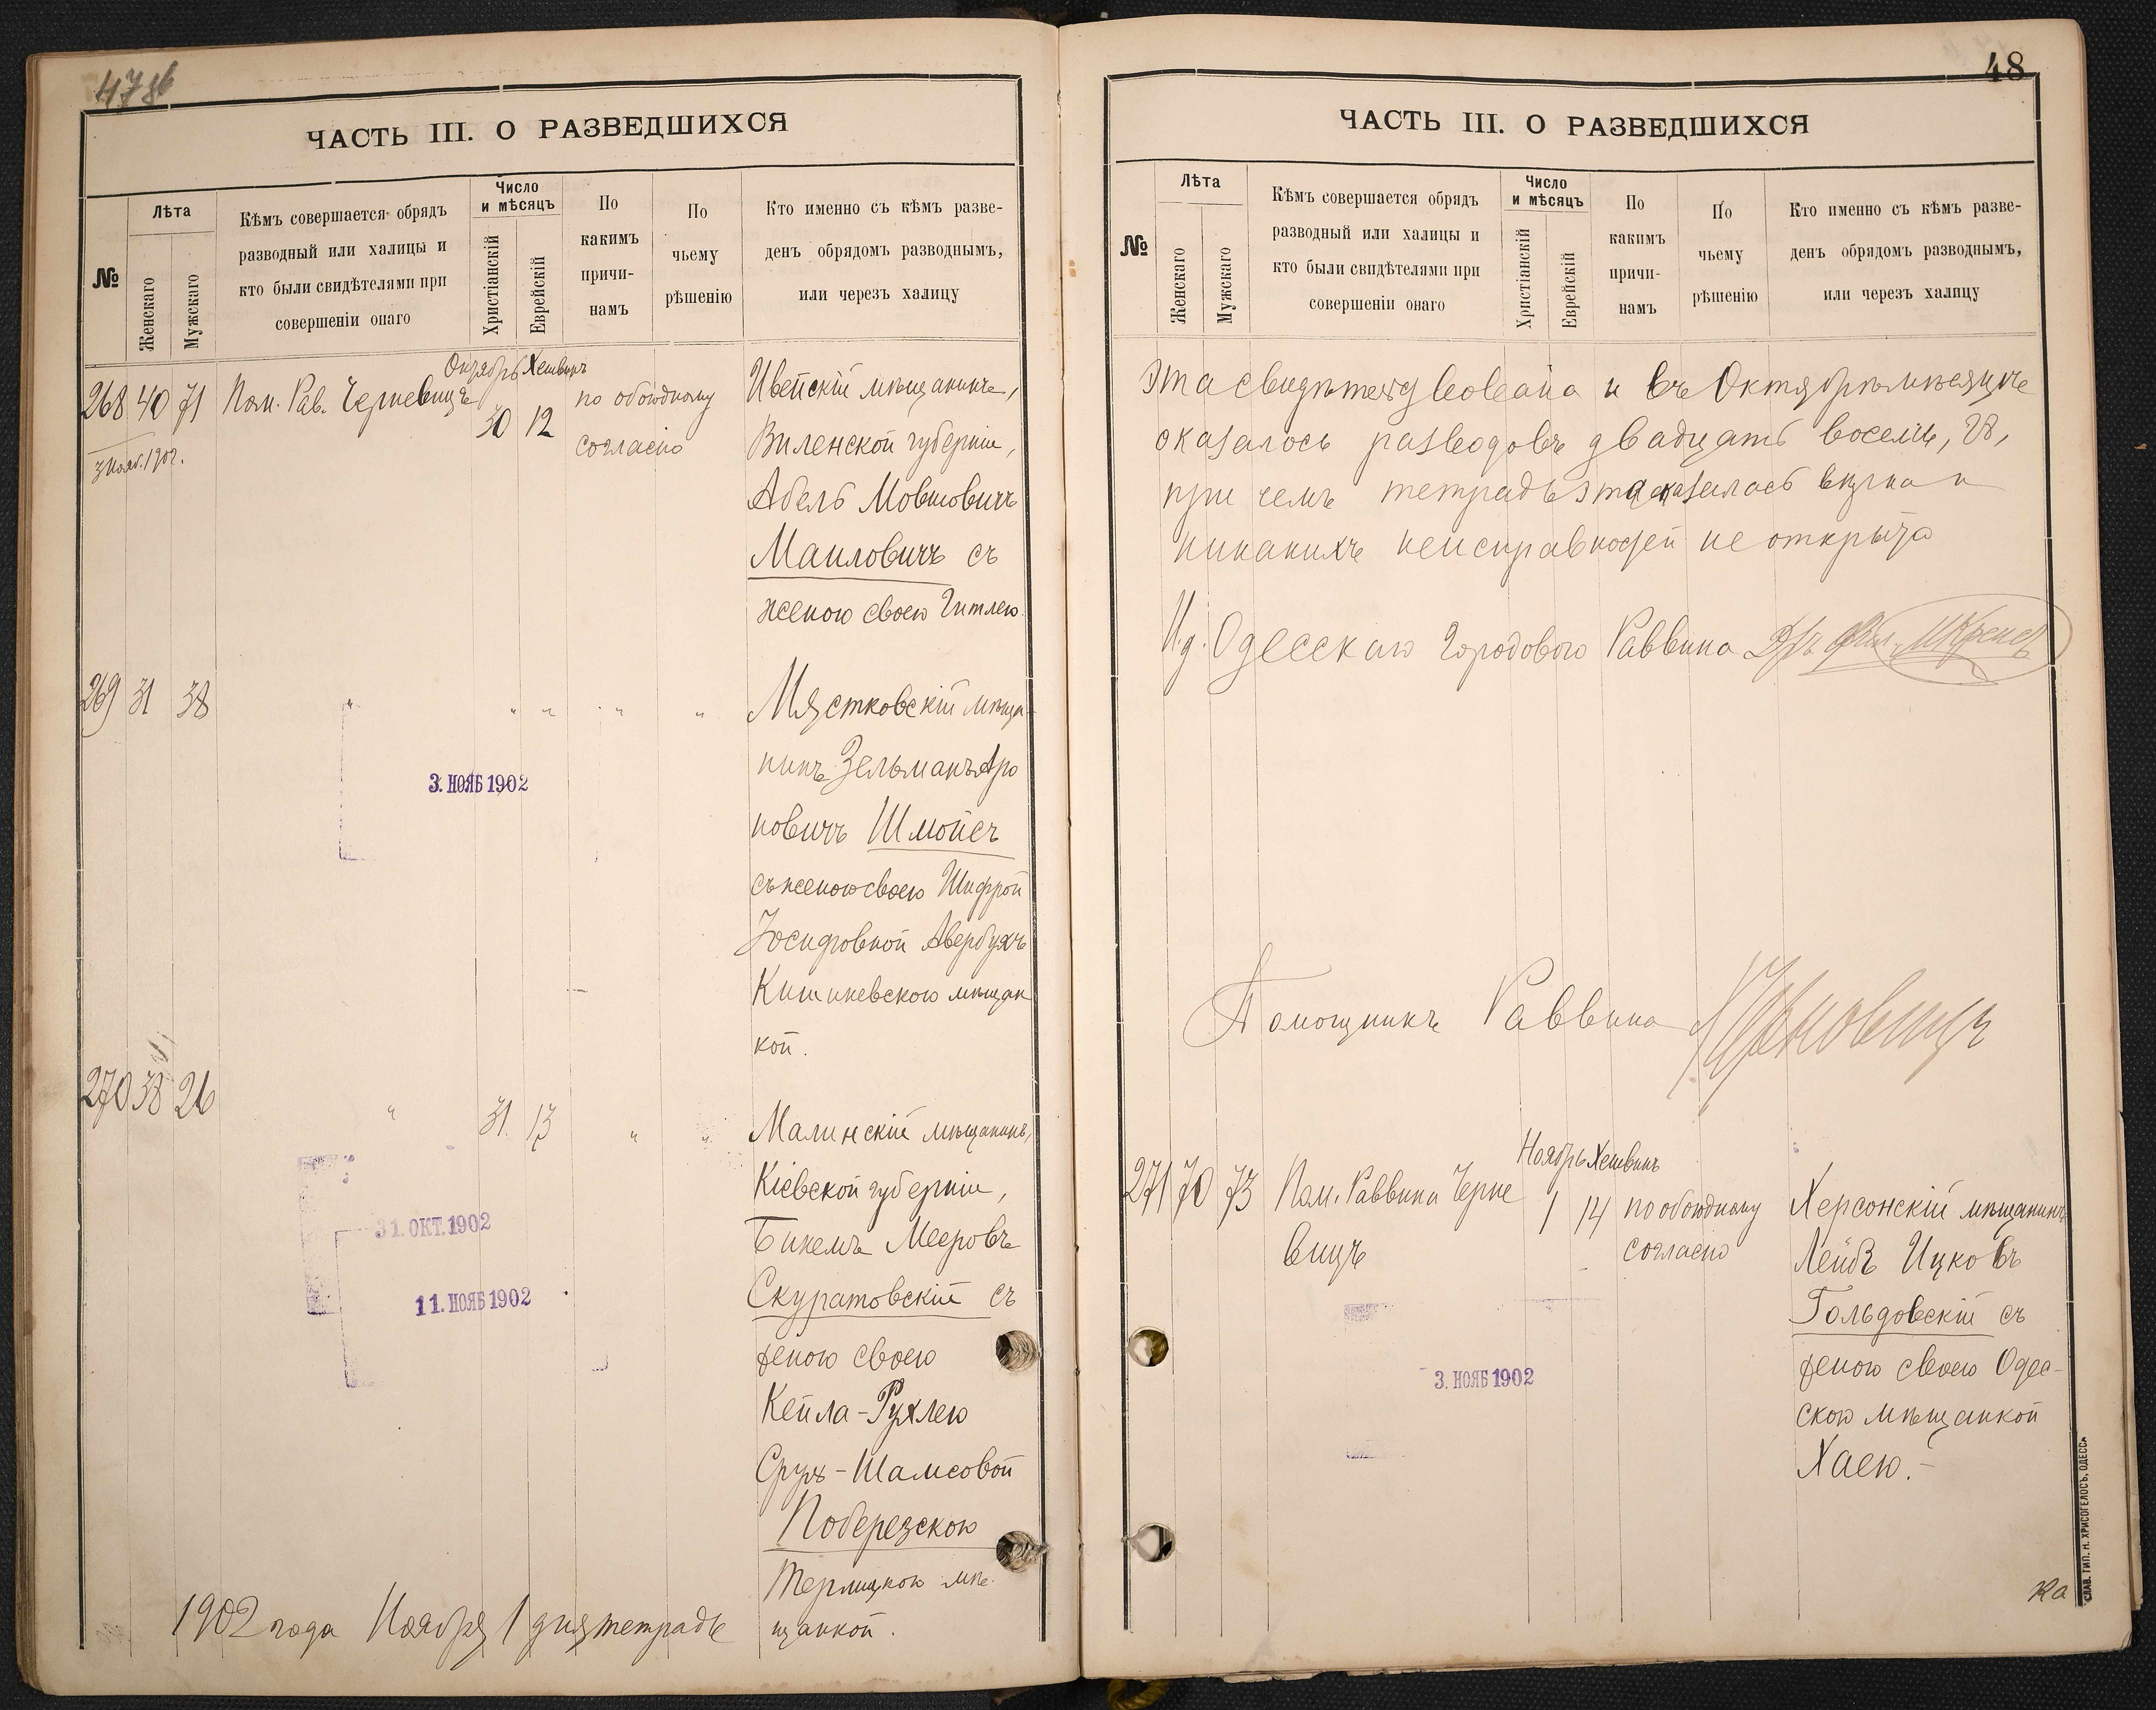 478б
ЧАСТЬ III. О РАЗВЕДШИХСЯ
№
Лѣта
Женскаго
Мужскаго
Кѣмъ совершается обрядъ
разводный или халицы и
кто были свидѣтелями при
совершеніи онаго
Число
и мѣсяцъ
Христіанскій
Еврейскій
По
какимъ
причи-
намъ
По
чьему
рѣшенію
Кто именно съ кѣмъ разве-
денъ обрядомъ разводнымъ,
или черезъ халицу
Октябрь Хешвинъ
268 40 71 Пом. Рав. Черневицъ 30 12 по обоюдному Ивейскій мѣщанинъ,
3 Нояб. 1902. согласію Виленской губерніи,
Абель Мовшовичъ
Маиловичъ съ
женою своею Гитлею.
269 31 38 " " " " " Мястковскій мѣща-
нинъ Зельманъ Аро
новичъ Шмойсъ
3. НОЯБ 1902
съ женою своею Шифрой
Іосифовной Авербухъ
Кишиневскою мѣщан
кой.
270 38 26 " 31 13 " " Малинскій мѣщанинъ,
Кіевской губерніи,
Бинемъ Мееровъ
31. ОКТ. 1902
Скуратовскій съ
11. НОЯБ 1902
женою своею
Кейла-Рухлею
Срухъ-Шамсовой
Поберезскою
Терлицкою мѣ-
щанкой.
1902 года Ноября 1 дня тетрадь
48
ЧАСТЬ III. О РАЗВЕДШИХСЯ
№
Лѣта
Женскаго
Мужскаго
Кѣмъ совершается обрядъ
разводный или халицы и
кто были свидѣтелями при
совершеніи онаго
Число
и мѣсяцъ
Христіанскій
Еврейскій
По
какимъ
причи-
намъ
По
чьему
рѣшенію
Кто именно съ кѣмъ разве-
денъ обрядомъ разводнымъ,
или черезъ халицу
эта свидѣтельствована и въ Октябрѣ мѣсяцѣ
оказалось разводовъ двадцать восемь, 28,
при чемъ тетрадь эта оказалась вѣрна и
никакихъ неисправностей не открыто
И.д. Одесскаго Городового Раввина Д-ръ Фил. Крепсъ
Помощникъ Раввина
Ноябрь Хешвинъ
271 70 73 Пом. Раввина Черне 1 14 по обоюдному Херсонскій мѣщанинъ
вицъ согласію Лейбъ Ицковъ
Гольдовскій съ
женою своею Одес-
3. НОЯБ 1902
скою мѣщанкой
Хаею.-
Ка
СЛАВ. ТИП. Н. ХРИСОГЕЛОСЪ, ОДЕССА